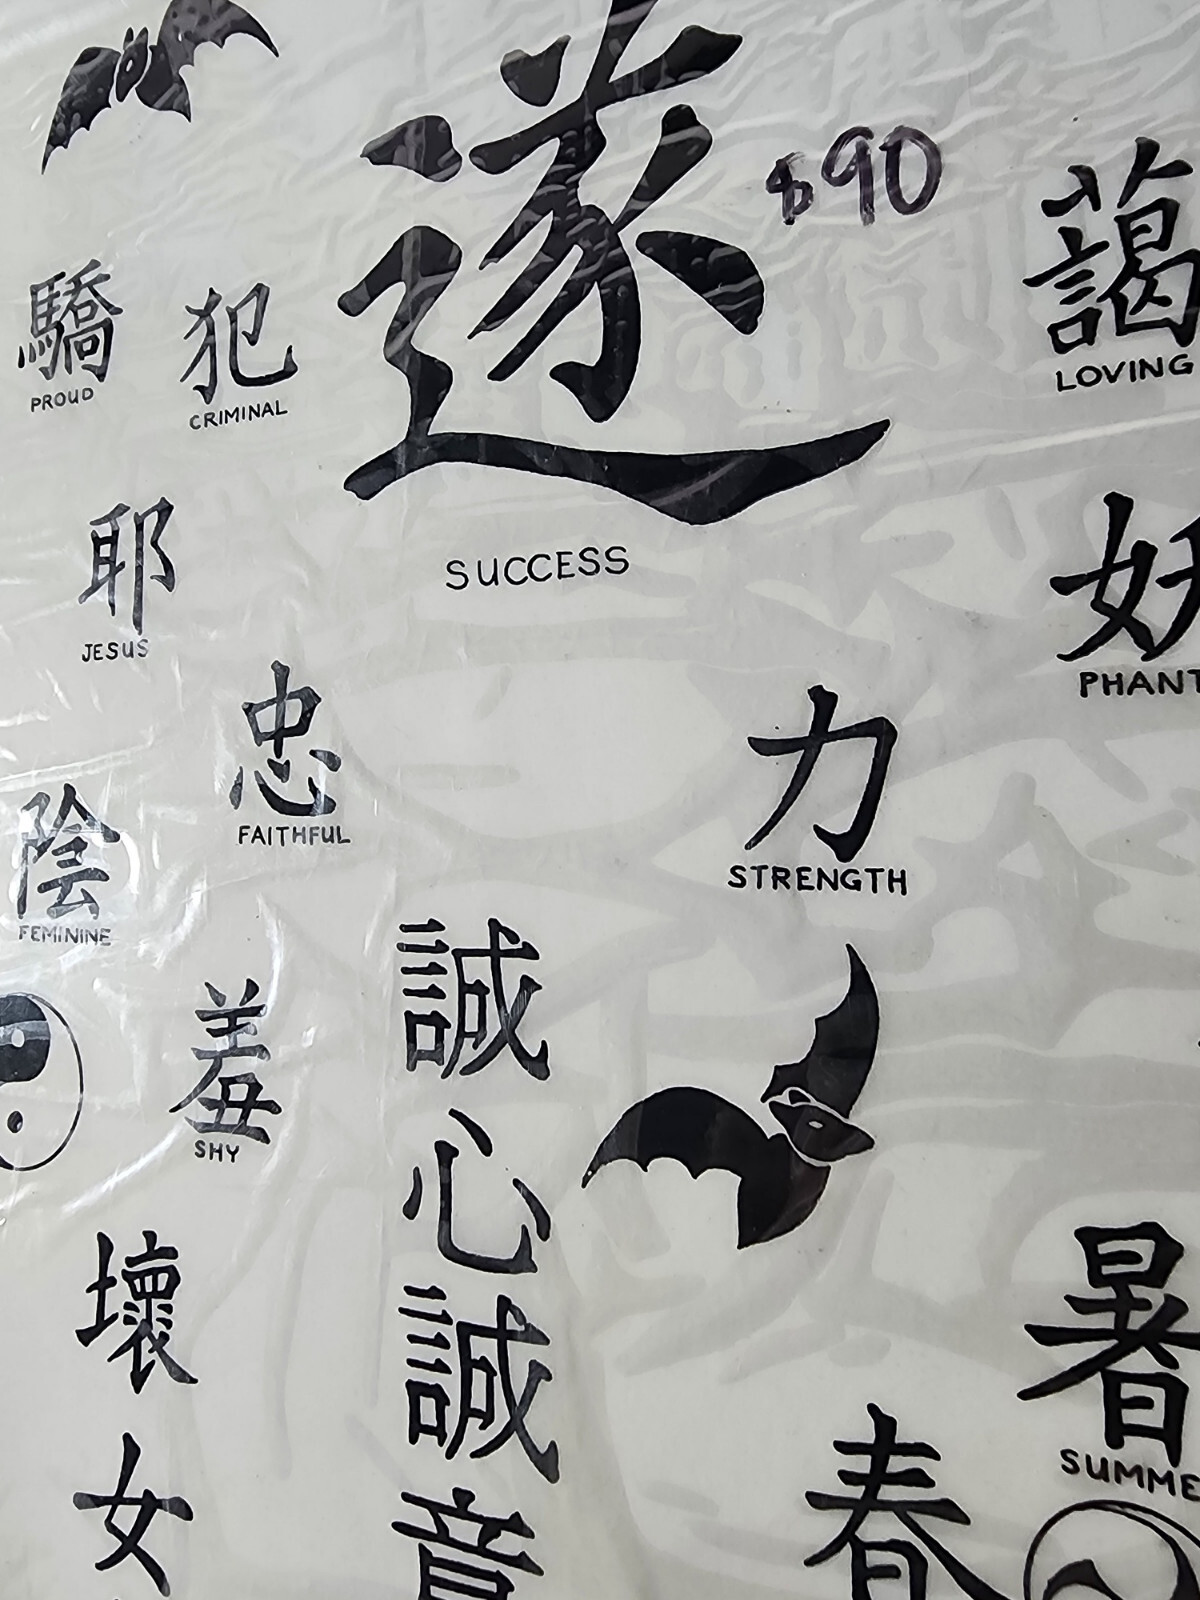 遂
$90
SUCCESS
驕
PROUD
犯
CRIMINAL
藹
LOVING
耶
JESUS
忠
FAITHFUL
力
STRENGTH
妖
PHANT
陰
FEMININE
羞
SHY
誠
心
誠
意
壞
女
暑
SUMME
春